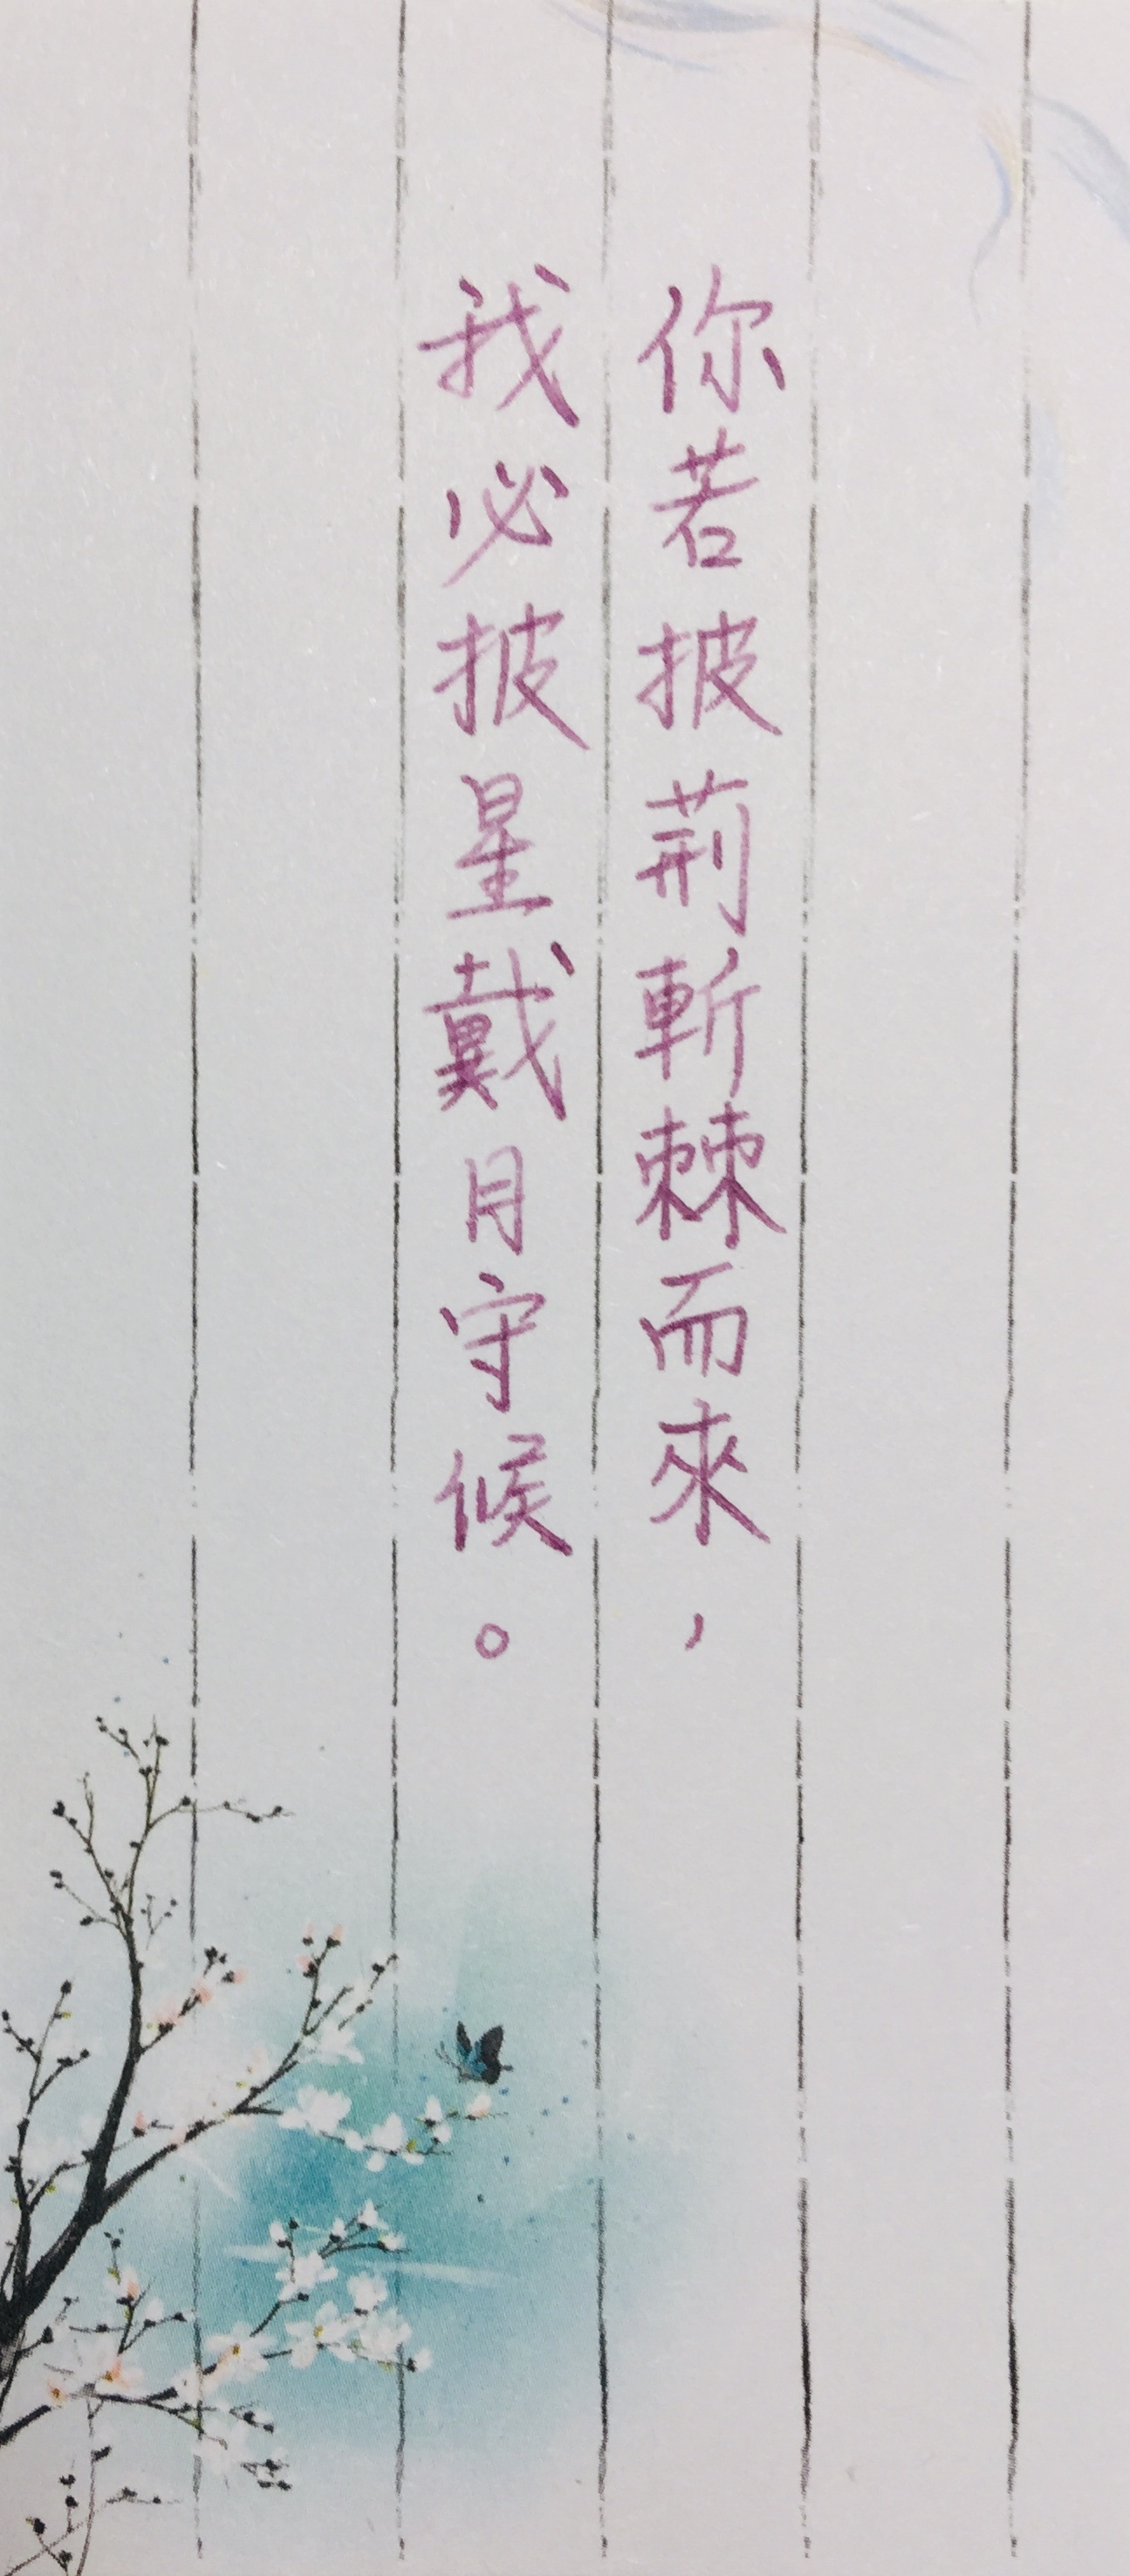 你若披荊斬棘而來，
我必披星戴月守候。